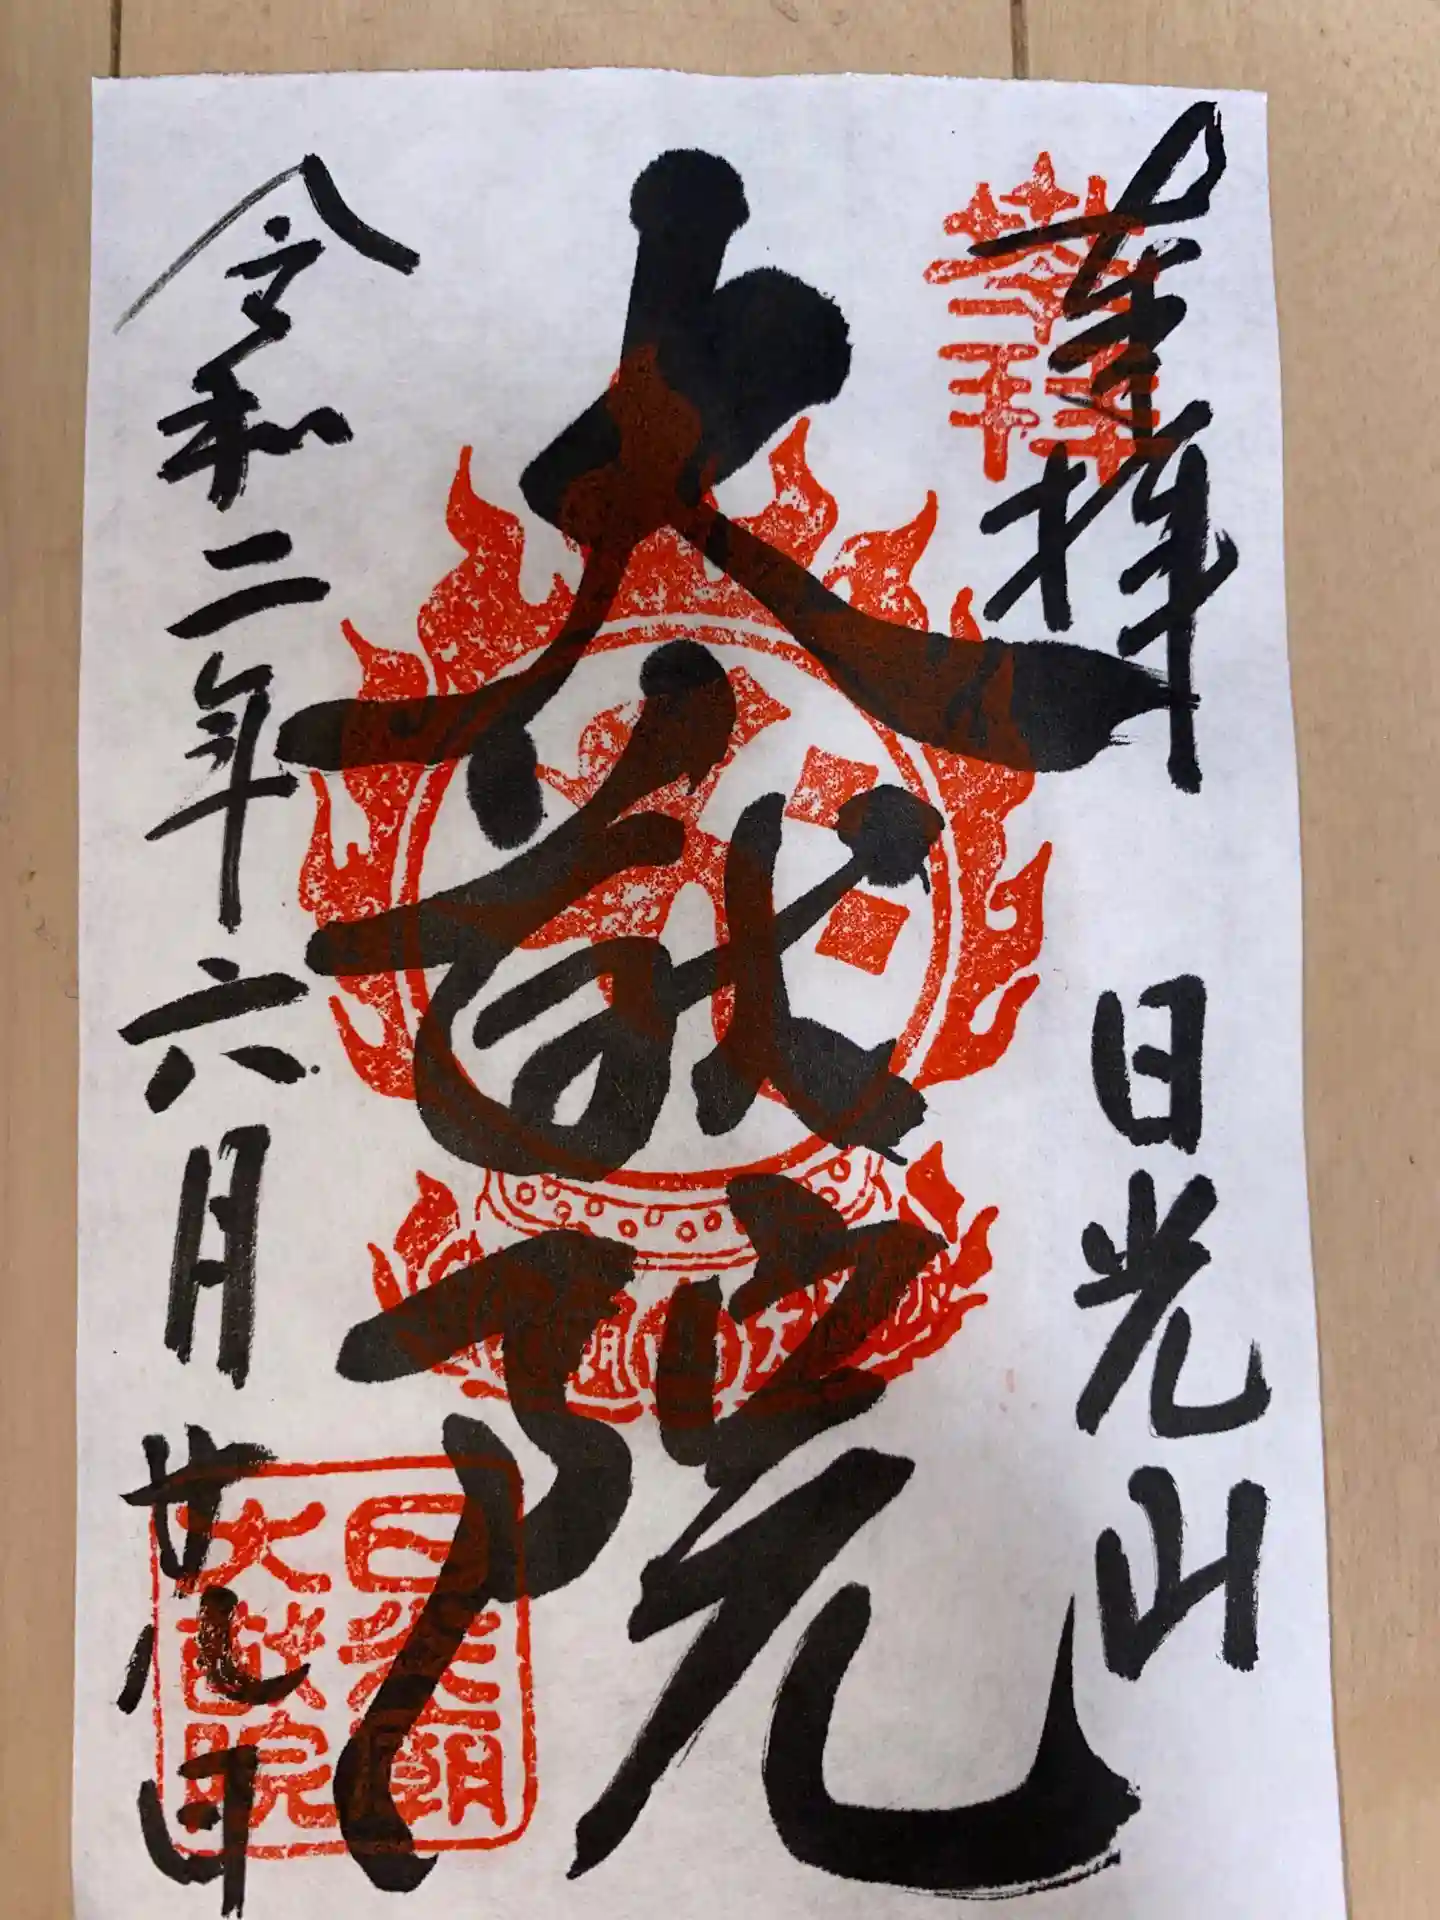 奉拝 日光山
大猷院
令和二年六月廿八日
奉拝
日光廟
大猷院